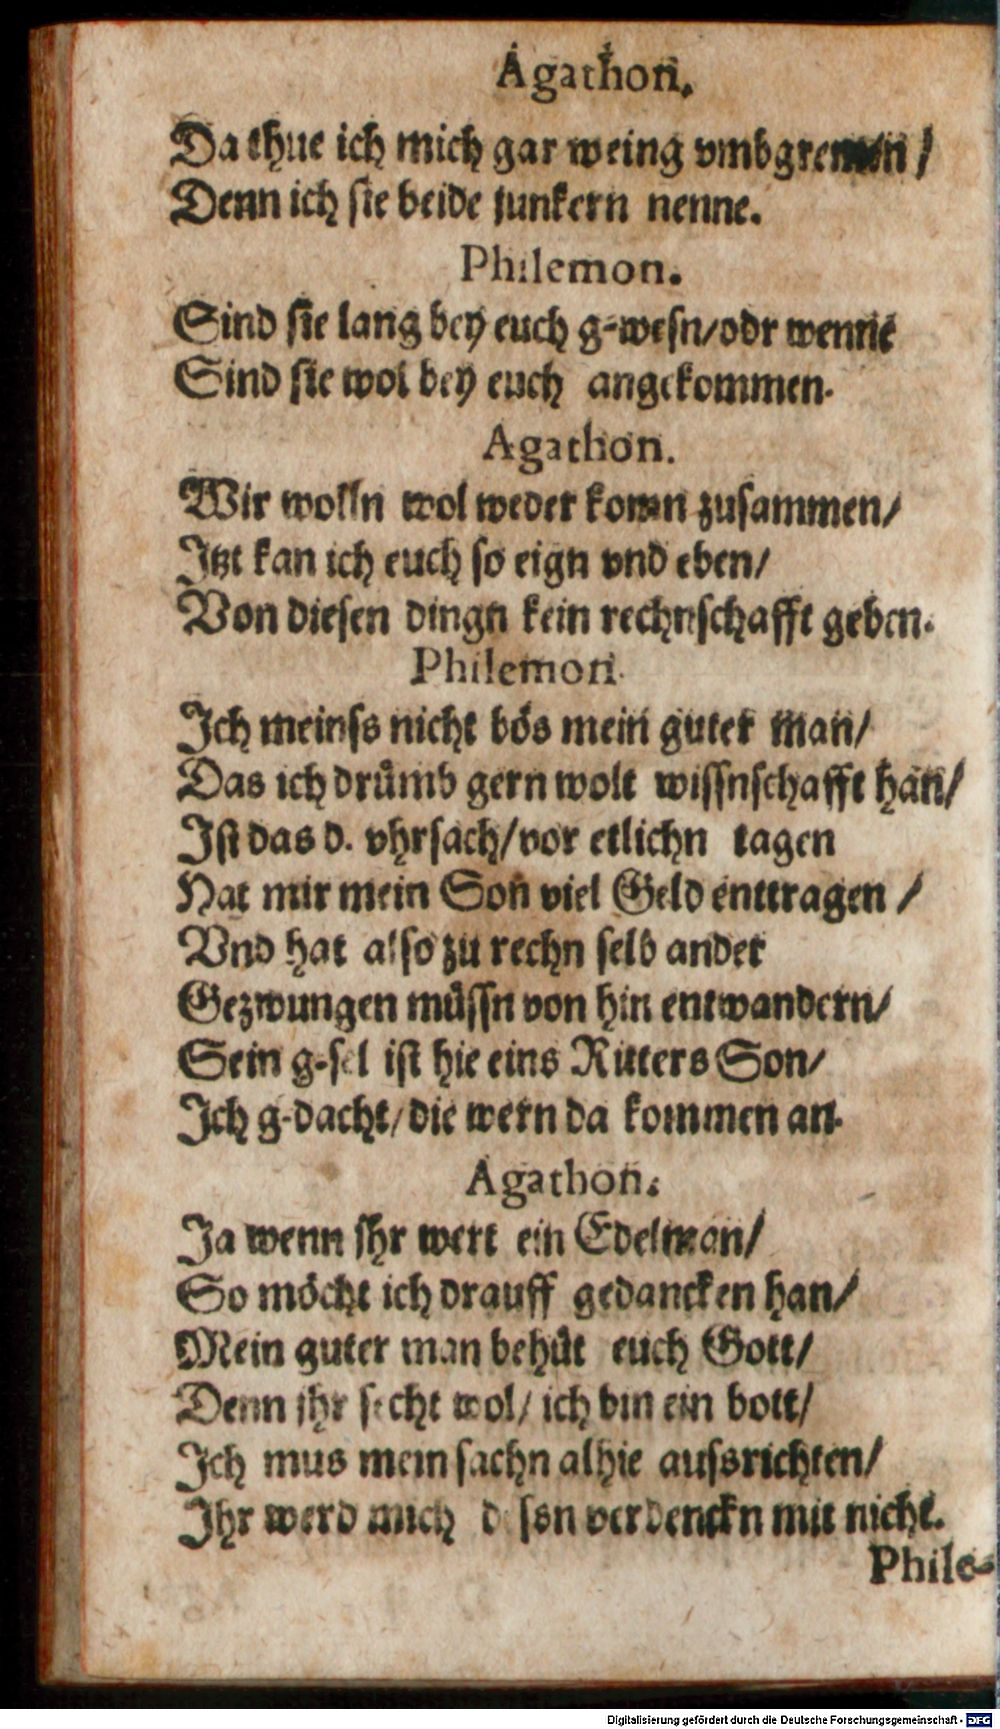 Agathon.
Da thue ich mich gar weing vmbgremen/
Denn ich sie beide junkern nenne.
Philemon.
Sind sie lang bey euch g-wesn/odr wenne
Sind sie wol bey euch angekommen.
Agathon.
Wir wolln wol weder komn zusammen/
Itzt kan ich euch so eign vnd eben/
Von diesen dingn kein rechnschafft geben.
Philemon.
Ich meinss nicht bös mein guter man/
Das ich drümb gern wolt wissnschafft han/
Ist das d. vhrsach/vor etlichn tagen
Hat mir mein Son viel Geld enttragen /
Vnd hat also zu rechn selb ander
Gezwungen müssn von hin entwandern/
Sein g-sel ist hie eins Ritters Son/
Ich g-dacht/die wern da kommen an.
Agathon.
Ja wenn jhr wert ein Edelman/
So möcht ich drauff gedancken han/
Mein guter man behüt euch Gott/
Denn jhr secht wol/ ich bin ein bott/
Ich mus mein sachn alhie aussrichten/
Ihr werd mich verdenckn mit nicht.
Phile-
Digitalisierung gefördert durch die Deutsche Forschungsgemeinschaft - DFG